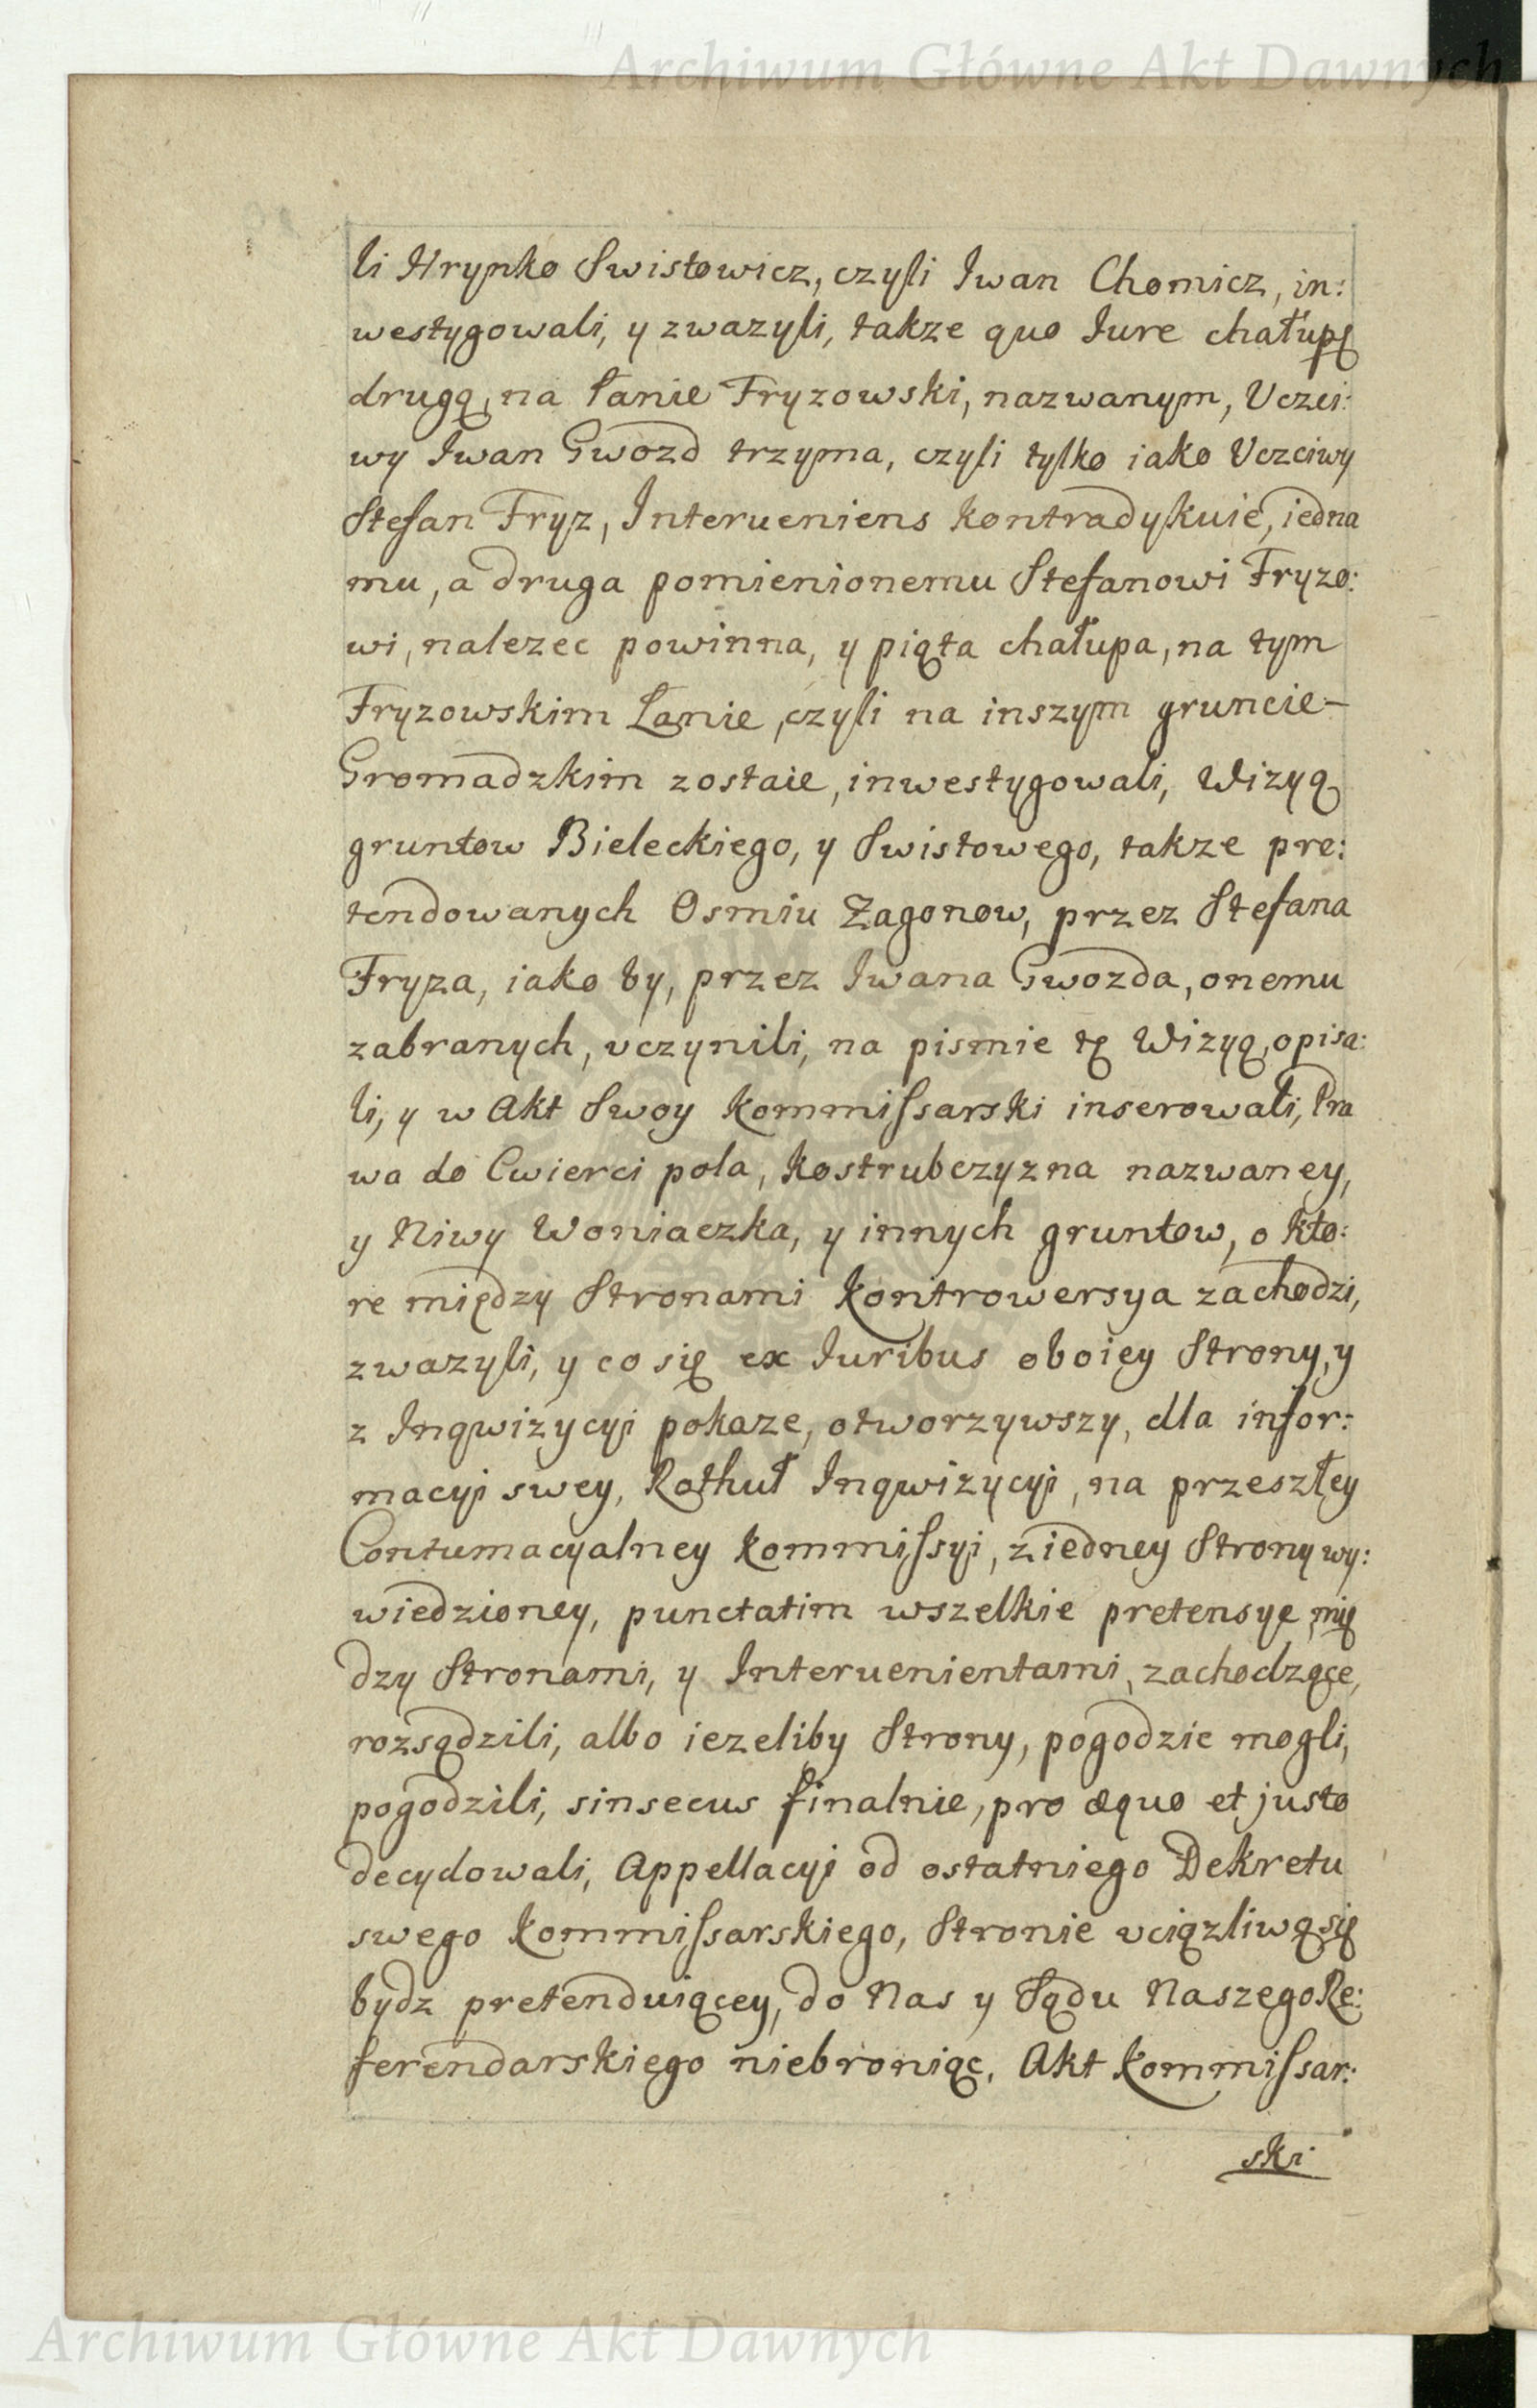 Archiwum Główne Akt Dawnych
li Hrynko Swistowicz, czyli Iwan Chomicz, in:
westygowali, y zwazyli, takze quo Iure chałupę
drugą, na łanie Fryzowski, nazwanym, Vczci:
wy Iwan Gwozd trzyma, czyli tylko iako Vczciwy
Stefan Fryz, Interueniens kontradykuie, iedna
mu, a druga pomienionemu Stefanowi Fryzo:
wi, nalezec powinna, y piąta chałupa, na tym
Fryzowskim Łanie, czyli na inszym gruncie
Gromadzkim zostaie, inwestygowali, Wizyą
gruntow Bieleckiego, y Swistowego, takze pre:
tendowanych Osmiu Zagonow, przez Stefana
Fryza, iako by, przez Iwana Gwozda, onemu
zabranych, vczynili, na pismie tę Wizyą, opisa:
li, y w Akt Swoy Kommissarski inserowali, Pra
wa do Cwierci pola, Kostrubczyzna nazwaney,
y Niwy Woniaczka, y innych gruntow, o kto:
re między Stronami kontrowersya zachodzi,
zwazyli, y co się ex Iuribus oboiey Strony, y
z Inqwizycyi pokaze, otworzywszy, dla infor:
macyi swey, Rothuł Inqwizycyi, na przeszłey
Contumacyalney Kommissyi, z iedney Strony wy:
wiedzioney, punctatim wszelkie pretensye, mię
dzy Stronami, y Interuenientami, zachodzące,
rozsądzili, albo iezeliby Strony, pogodzic mogli,
pogodzili, sinsecus finalnie, pro æquo et justo
decydowali, Appellacyi od ostatniego Dekretu
swego Kommissarskiego, Stronie vciązliwą się
bydz pretenduiącey, do Nas y Sądu Naszego Re:
ferendarskiego niebroniąc, Akt Kommissar:
ski
Archiwum Główne Akt Dawnych